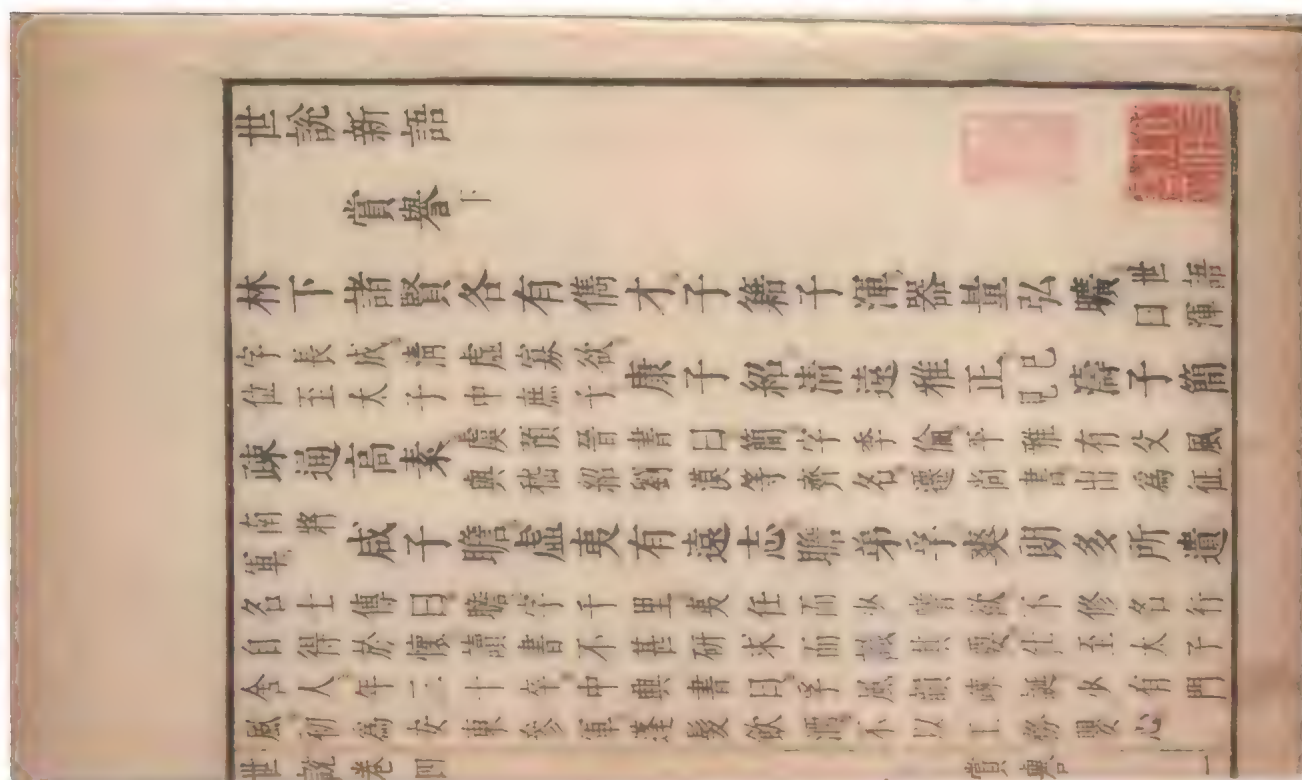 世說新語
賞譽下
林下諸賢各有儁才子籍子渾器量弘曠世語曰渾
字長成清虛寡欲位至太子中庶子康子紹清遠雅正已見濤子簡
疎通高素虞預晉書曰簡字季倫平雅有父風與嵇紹劉漠等齊名遷尚書出為征
南將軍咸子瞻虛夷有遠志瞻弟孚爽朗多所遺
名士傳曰瞻字千里夷任而少嗜欲不修名行
自得於懷讀書不甚研求而識其要仕至太子
舍人年三十卒中興書曰孚風韻疎誕少有門
風初為安東參軍蓬髮飲酒不以王務嬰心
世說卷四 賞譽 一